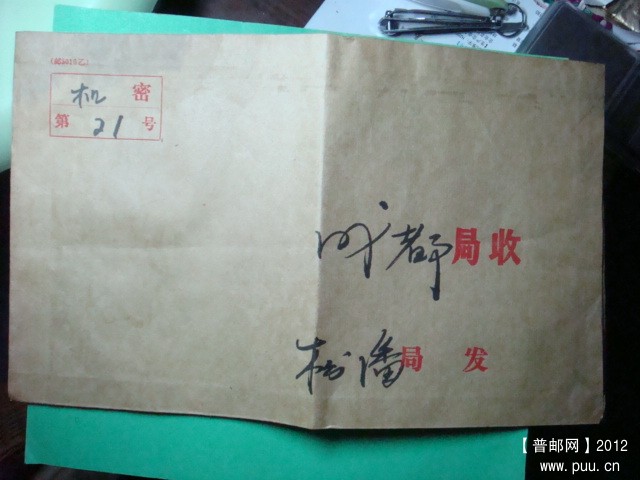 机密
第21号
成都局收
松潘局发
【普邮网】2012
www.puu.cn